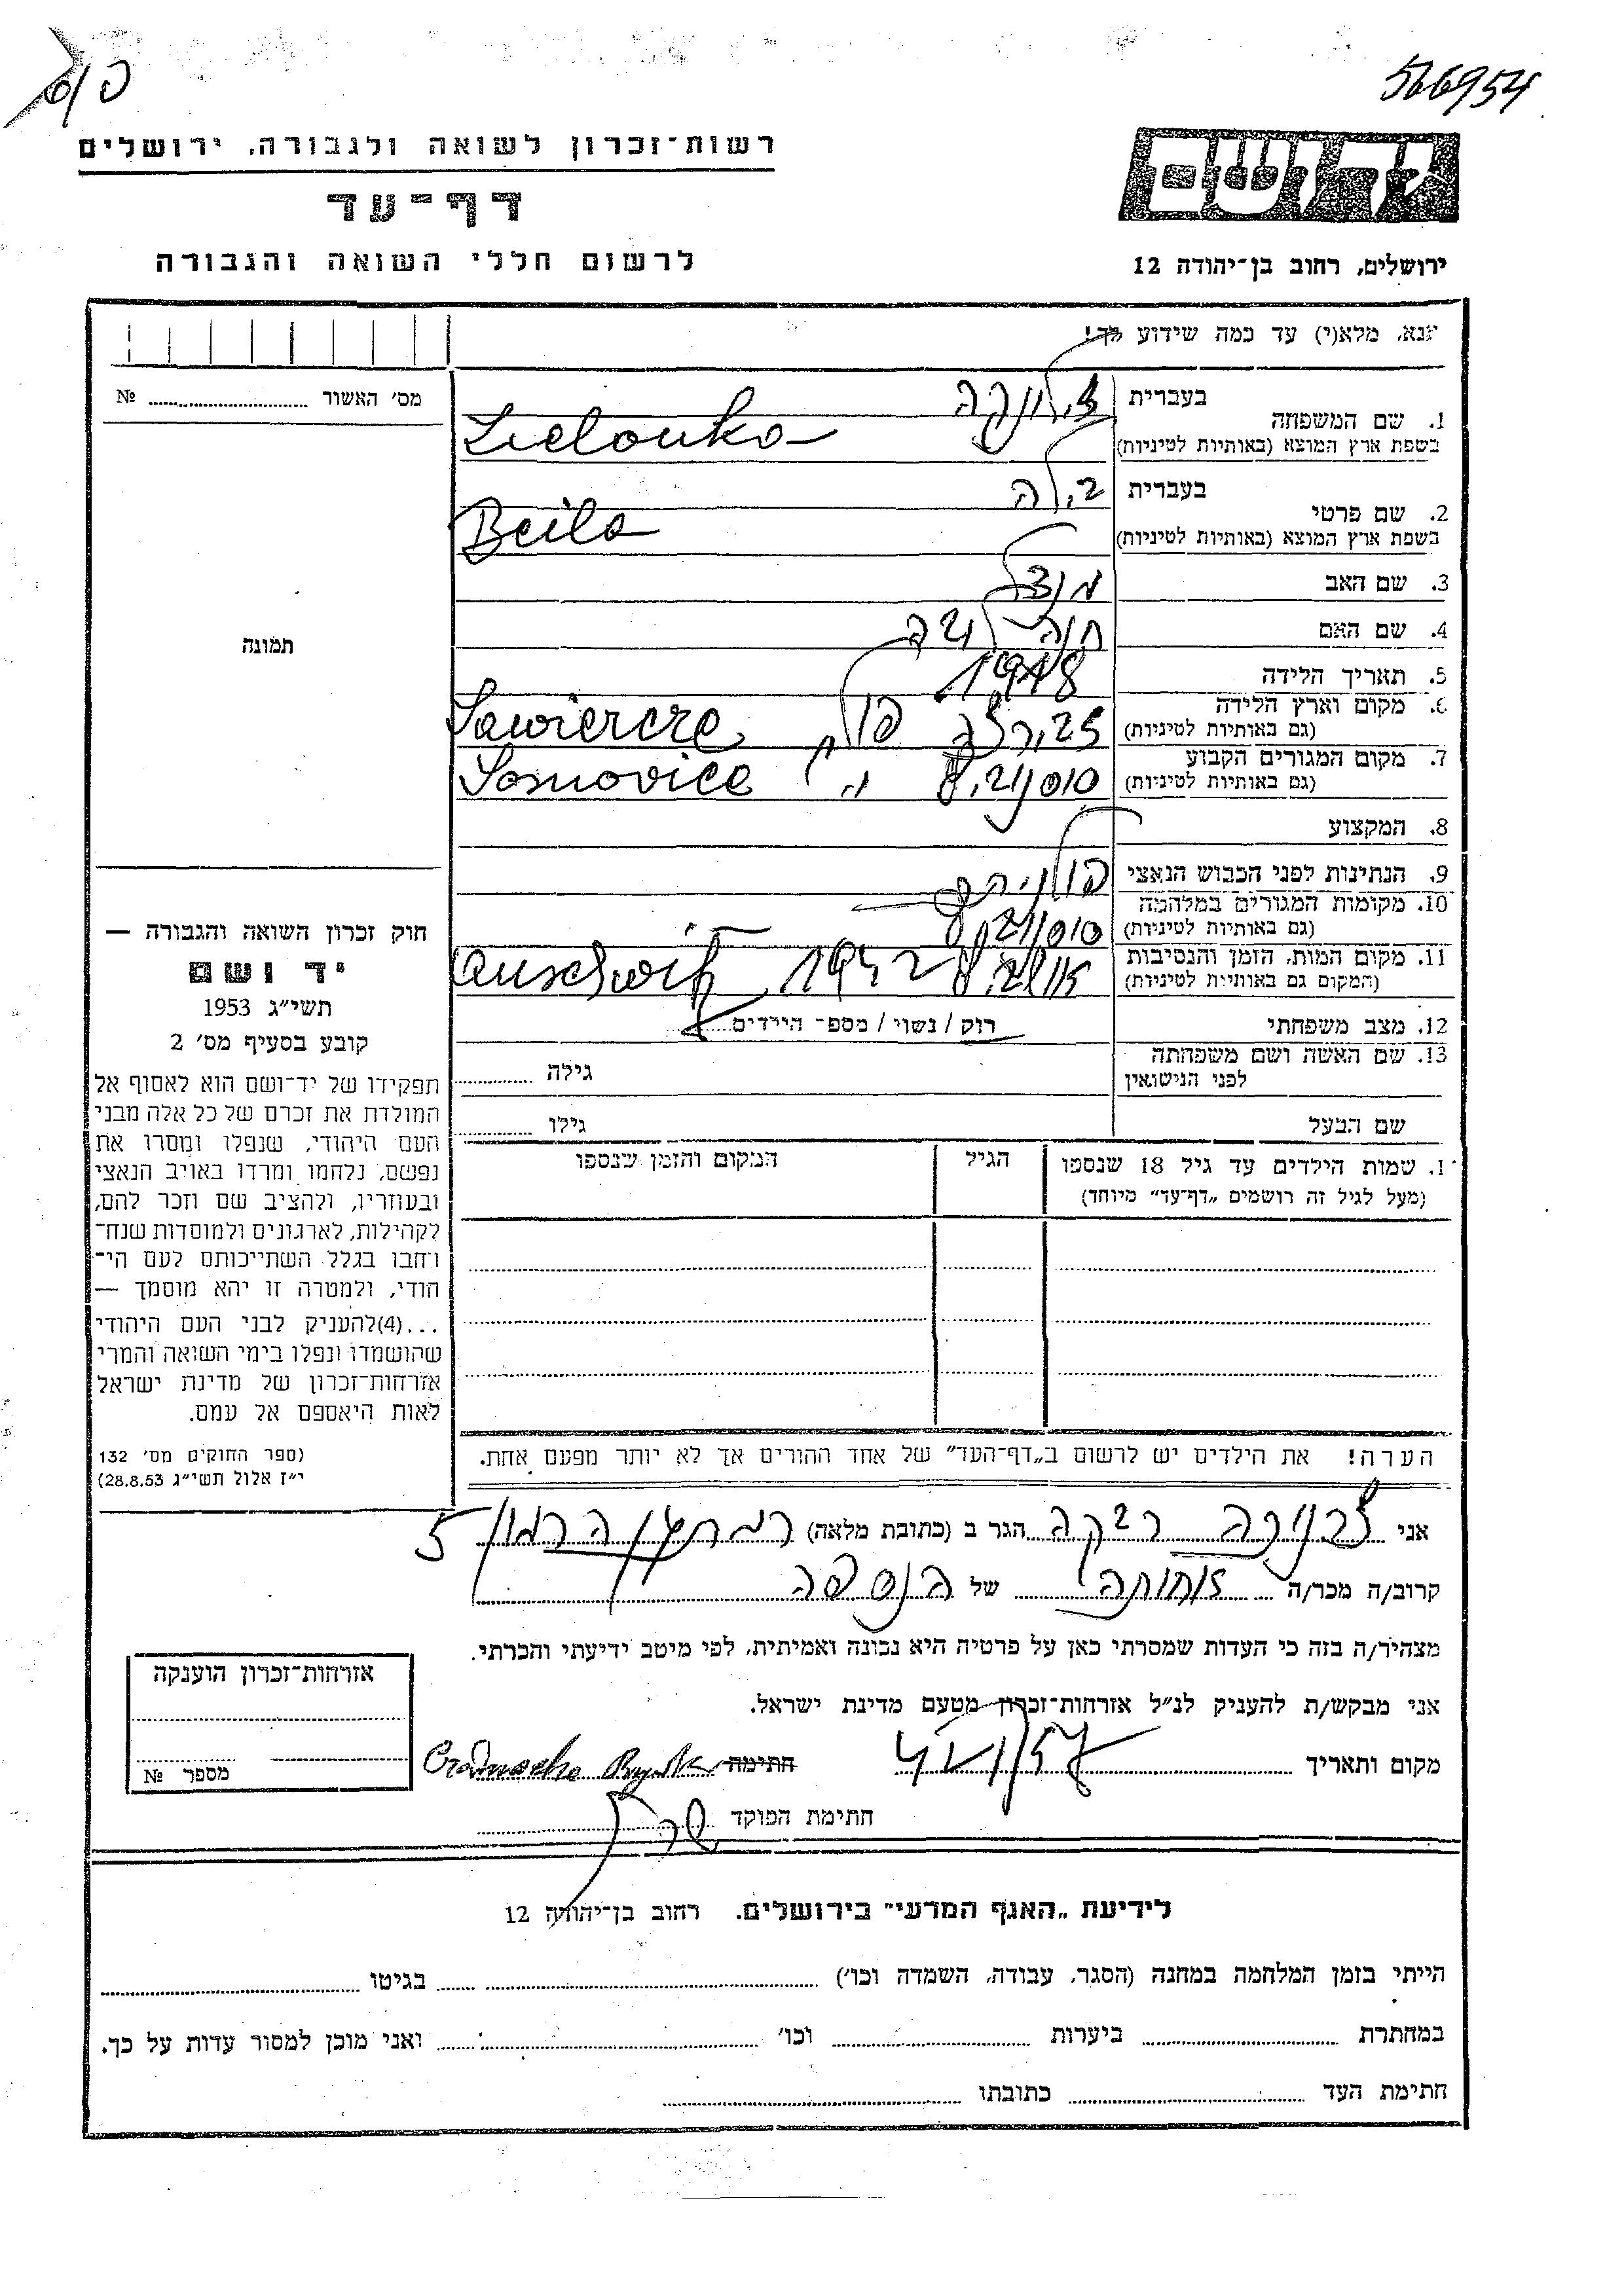 566954
רשות-זכרון לשואה ולגבורה, ירושלים
דף-עד
לרשום חללי השואה והגבורה
ירושלים, רחוב בן-יהודה 12
אנא, מלא(י) עד כמה שידוע לך!
מס׳ האשור № 
1. שם המשפחה
בעברית
בשפת ארץ המוצא (באותיות לטיניות)
2. שם פרטי
בעברית בילה
בשפת ארץ המוצא (באותיות לטיניות) Beila
3. שם האב
4. שם האם חוה
5. תאריך הלידה
6. מקום וארץ הלידה
(גם באותיות לטיניות) פולין
7. מקום המגורים הקבוע
(גם באותיות לטיניות) סוסנוביץ Sosnovice
8. המקצוע
9. הנתינות לפני הכבוש הנאצי פולנית
10. מקומות המגורים במלחמה
(גם באותיות לטיניות) סוסנוביץ
11. מקום המות, הזמן והנסיבות
(המקום גם באותיות לטיניות) 1942 Auschwitz
12. מצב משפחתי רוק / נשוי / מספר הילדים
13. שם האשה ושם משפחתה
לפני הנישואין
גילה
שם הבעל גילו
תמונה
שמות הילדים עד גיל 18 שנספו
(מעל לגיל זה רושמים „דף-עד" מיוחד)
הגיל
המקום והזמן שנספו
חוק זכרון השואה והגבורה —
יד ושם
תשי״ג 1953
קובע בסעיף מס׳ 2
תפקידו של יד-ושם הוא לאסוף אל
המולדת את זכרם של כל אלה מבני
העם היהודי, שנפלו ומסרו את
נפשם, נלחמו ומרדו באויב הנאצי
ובעוזריו, ולהציב שם וזכר להם,
לקהילות, לארגונים ולמוסדות שנח-
רחבו בגלל השתייכותם לעם הי-
הודי, ולמטרה זו יהא מוסמך —
...(4)להעניק לבני העם היהודי
שהושמדו ונפלו בימי השואה והמרי
אזרחות-זכרון של מדינת ישראל
לאות היאספם אל עמם.
(ספר החוקים מס׳ 132
י״ז אלול תשי״ג 28.8.53)
הערה! את הילדים יש לרשום ב„דף-העד" של אחד ההורים אך לא יותר מפעם אחת.
אני רבקה הגר ב (כתובת מלאה) 5
קרוב/ה מכר/ה אחותה של הנספה
מצהיר/ה בזה כי העדות שמסרתי כאן על פרטיה היא נכונה ואמיתית, לפי מיטב ידיעתי והכרתי.
אני מבקש/ת להעניק לנ״ל אזרחות-זכרון מטעם מדינת ישראל.
מקום ותאריך חתימה
חתימת הפוקד
אזרחות-זכרון הוענקה
מספר №
לידיעת „האגף המדעי" בירושלים. רחוב בן-יהודה 12
הייתי בזמן המלחמה במחנה (הסגר, עבודה, השמדה וכו׳) בגיטו
במחתרת ביערות וכו׳ ואני מוכן למסור עדות על כך.
חתימת העד כתובתו